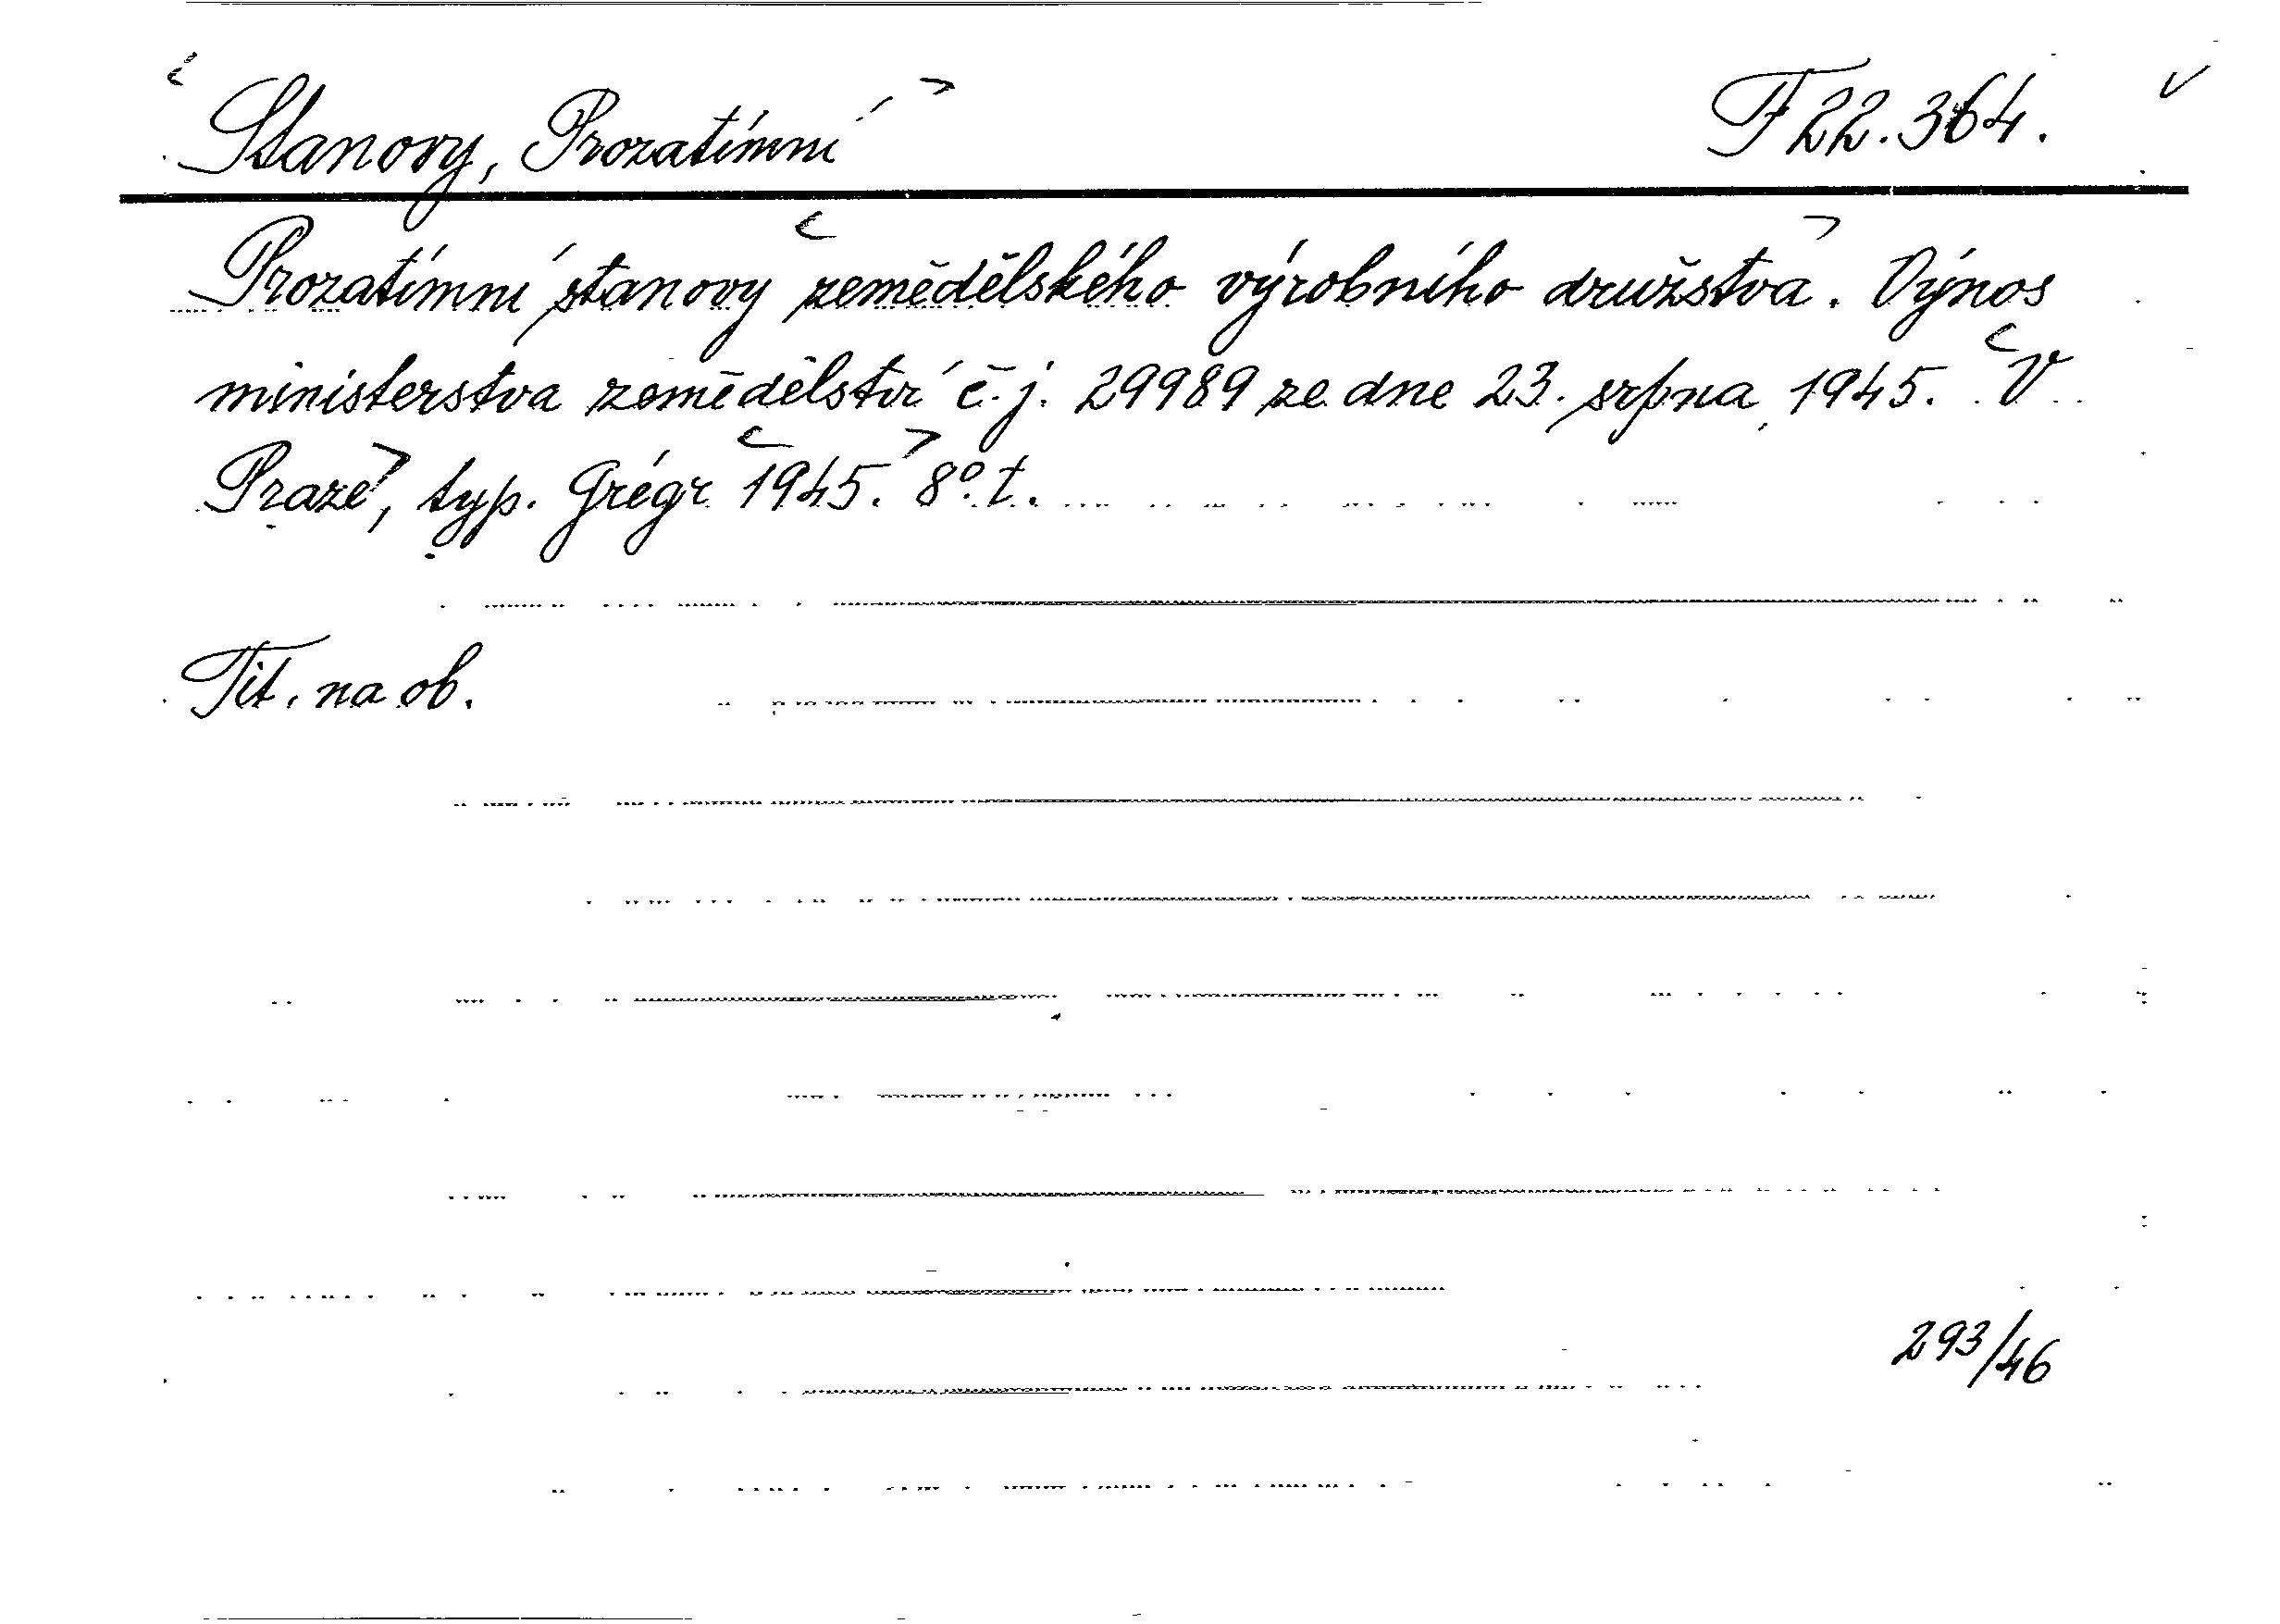 Stanovy, Prozatímní F 22.364.
Prozatímní stanovy zemědělského výrobního družstva. Výnos
ministerstva zemědělství č.j. 29989 ze dne 23. srpna 1945. V
Praze, typ. Grégr 1945. 8°. t.
Tit. na ob.
293/46